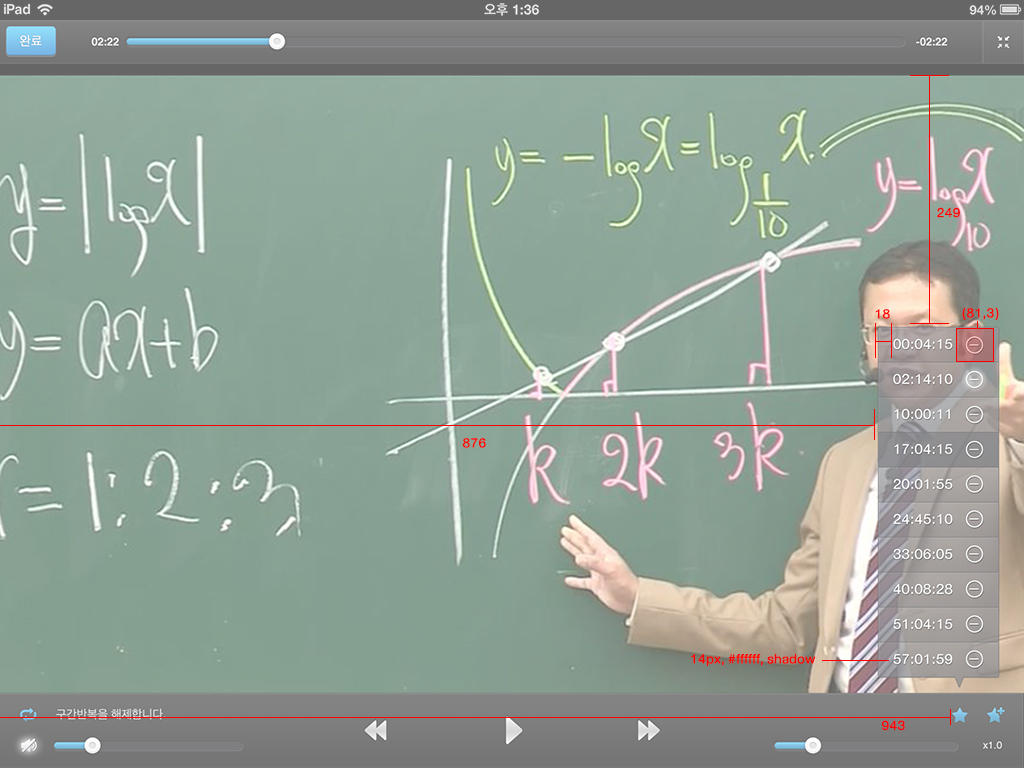 iPad 오후 1:36 94%
완료 02:22 -02:22
y = |log x|
y = ax+b
= 1 : 2 : 3
y = -log x = log 1/10 x.
y = log 10 x
k 2k 3k
249
18 (81,3)
00:04:15
02:14:10
10:00:11
17:04:15
20:01:55
24:45:10
33:06:05
40:08:28
51:04:15
57:01:59
876
14px, #ffffff, shadow
구간반복을 해제합니다
943
x1.0